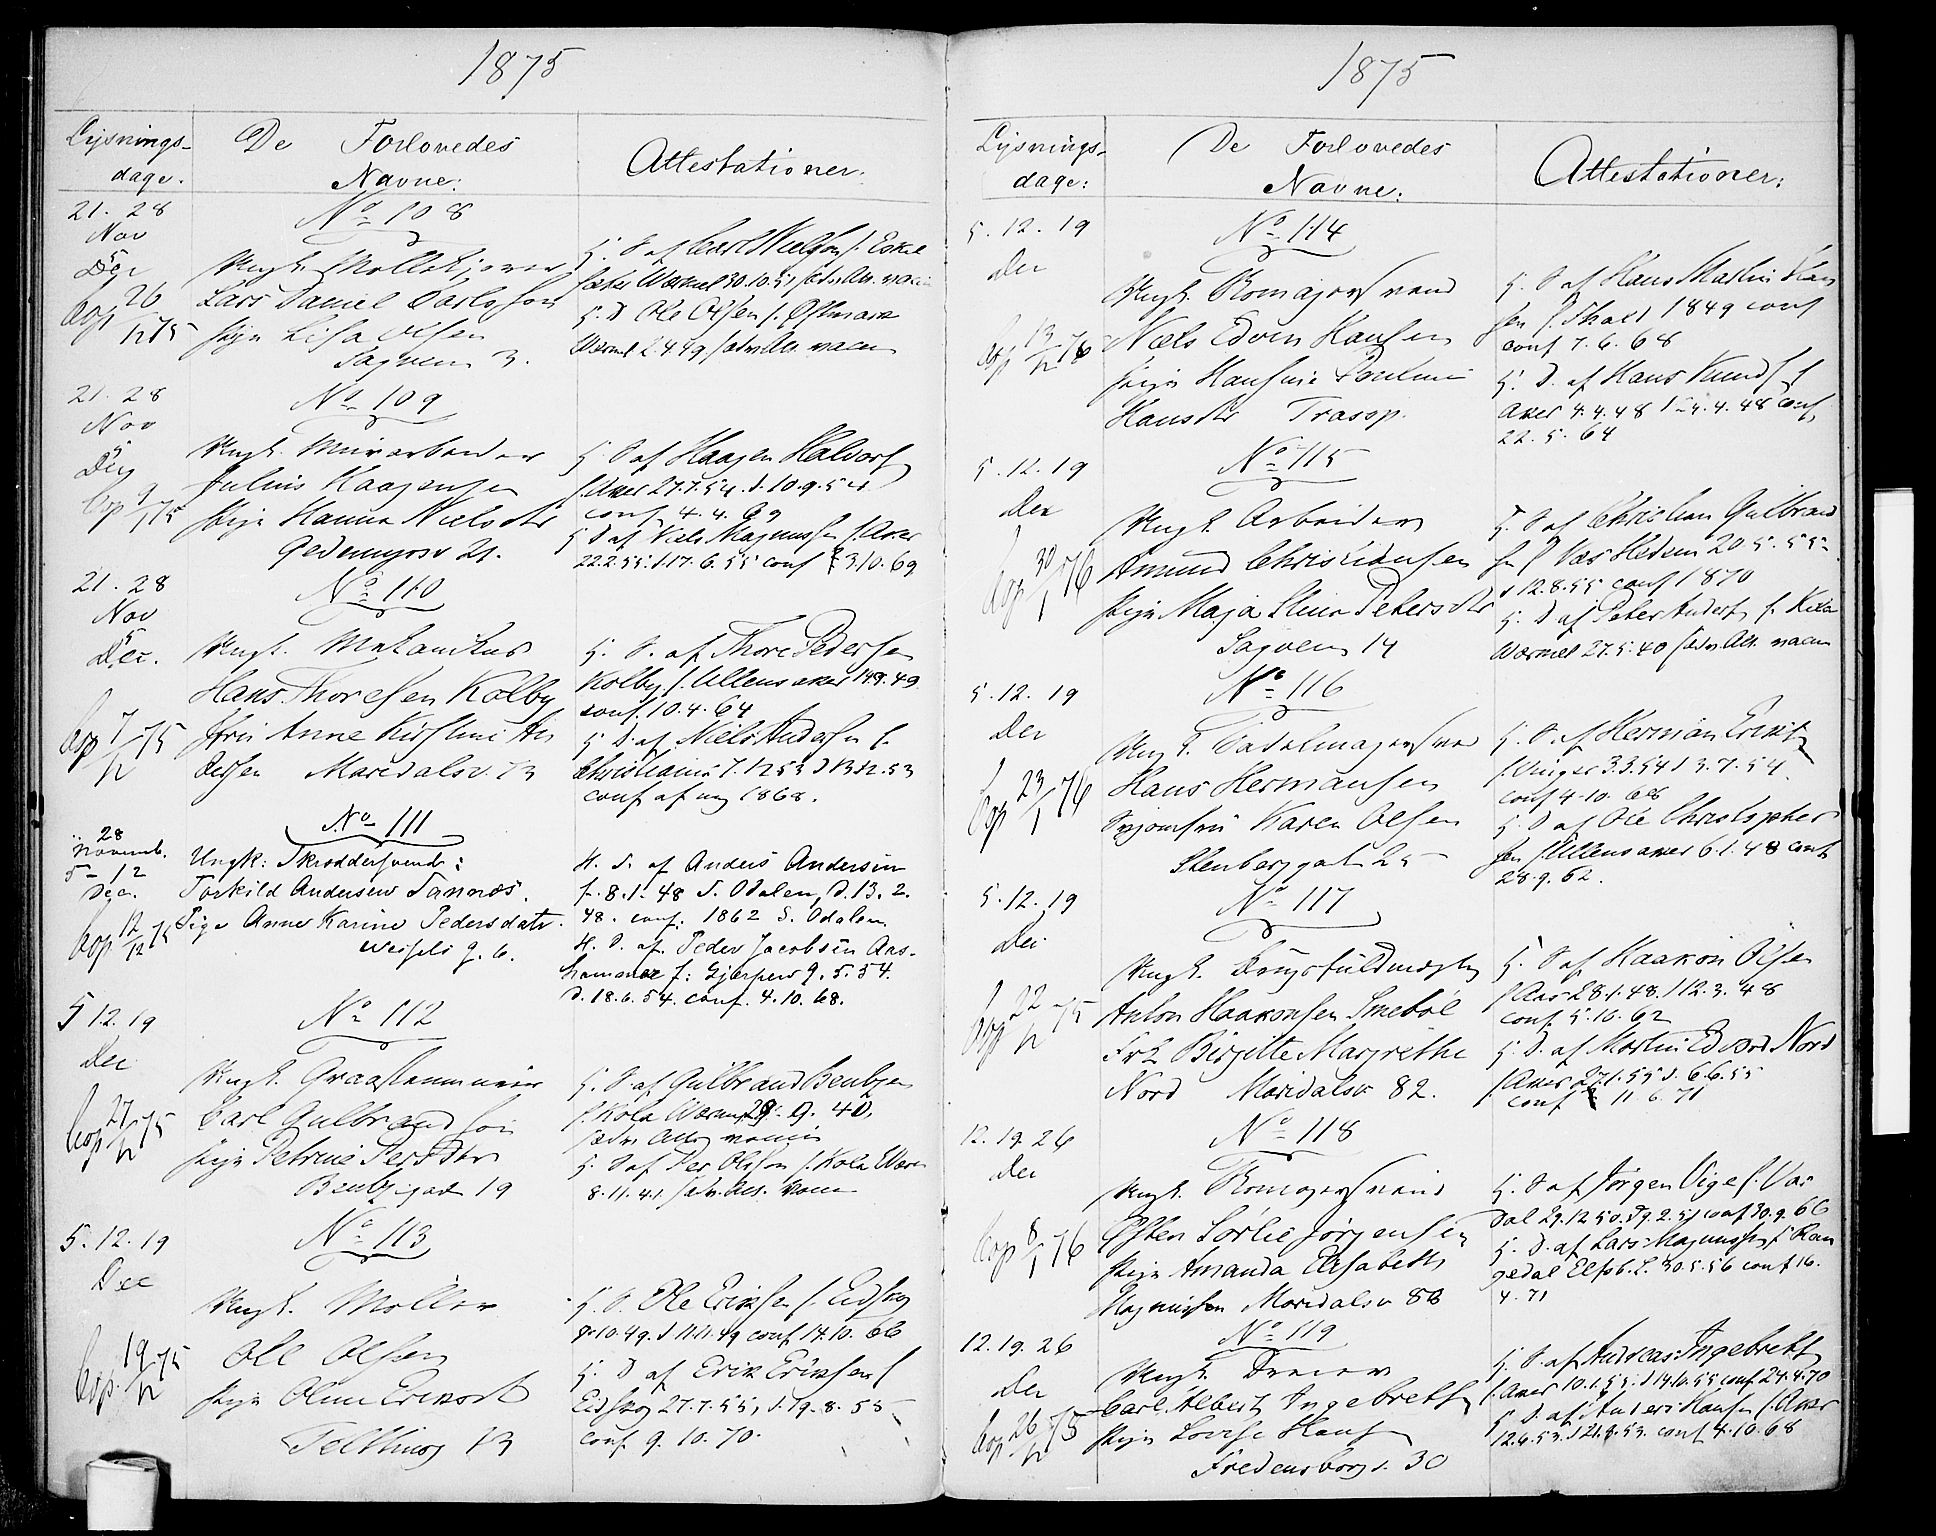 1875
Lysnings-
dage.
De Forlovedes
Navne:
Attestationer:
21. 28
Nov
5
Dec
Cop 26/12 75
No 108
Ungk.
Lars Daniel Carlsson
Pige Lisa Olsen
Sagveien 3.
H. S. af Carl f. Eskil
sæter Wærmel 30.10.51 sædv. Att. vaccin
H. D Ole Olsen f. Østmark
Wærmel 2.4.49 sædv. Att. vaccin
21. 28
Nov
5
Dec
Cop 75
No 109
Ungk. Murarbeider
Julius Haagensen
Pige Hanna Nielsdtr
21.
H S af Haagen Halvors
f. Aker 27.7.54. d. 10.9.54
conf. 4. 4. 69
H D af Niels Magnussen f. Aker
22.2.55. d. 17.6.55 conf 3.10.69
21. 28
Nov
5
Dec.
Cop 7/12 75
No 110
Ungk. Mekanikus
Hans Thoresen Kolby
Jfr. Anne Kirstine An
dersen Maridalsv. 73
H. S. af Thore Pedersen
Kolby f. Ullensaker 49
conf. 10.4.64
H D. af Niels Andersen f.
Christiania 7.12 53 d 13.12.53
conf af mg 1868.
28
Novemb.
5 - 12
Dec.
Cop 12/12 75
No 111
Ungk: Skræddersvend:
Torkild Andersen Tannæs.
Pige Anne Karine Pedersdatr.
Wessels g. 6.
H. S. af Anders Andersen
f. 8.1.48 S. Odalen, d. 13.2.
48. conf. 1862 S. Odalen.
H. D. af Peder Jacobsen Aas-
hammer f: Gjerpen 9.5.54.
d. 18.6.54. conf. 4.10.68.
5 12. 19
Dec
Cop 27/12 75
No 112
Ungk. Graastensmurer
Carl Gulbrandsen
Pige Petrine Persdtr
19
H. S af Gulbrand Bengtsen
f. Kola Wærmel 29. 9. 40.
sædv Att vaccin
H. D af Per Olsson f. Kola Wærm
8.11.41. sædv. Att. vaccin
5. 12. 19
Dec
Cop. 19/12 75
No 113
Ungk. Møller
Ole Olsen
Pige Oline Eriksdt
13
H. S. Ole Eriksen f. Eidskog
10.49. d 11.11.49 conf 14.10.66
H. D af Erik Eriksen f
Eidskog 27.7.55, d. 19.8.55
conf. 9. 10. 70.
1875
Lysnings-
dage:
De Forlovedes
Navne:
Attestationer:
5. 12. 19
Dec
Cop 13/12 76
No 114
Ungk. Rebmagersvend
Niels Edvin Hansen
Pige Hansine Pauline
Hansdtr Trasop.
H. S af Hans Martin Han
sen f. 1849 conf
conf 7.6.68
H. D. af Hans Knuds f
Aker 4.4.48 4.4.48 conf
22. 5. 64
5. 12. 19
Dec
Cop 30/1 76
No 115
Ungk. Arbeider
Amund Christiansen
Pige Maja Stina Petersdtr
Sagveien 14
H. S af Christian Gulbrand
sen f Vas Hedem 20.5.55
d 12.8.55 conf 1870
H. D af Peter Anders f. Kila
Wærmel 27.5.40 sædv. Att. vaccin
5. 12. 19
Dec
Cop 23/1 76
No 116
Ungk. Sadelmagersvend
Hans Hermansen
Karen Olsen
Stenberggaten 25
H. S. af Herman Eriks
f. Vinger 3.3.54 d 3.7.54.
conf 4.10.68
H. D af Ole Christopher
sen f Ullensaker 6.1.48 conf
28.9.62.
5. 12. 19
Dec
Cop 22/12 75
No 117
Ungk.
Anton Haakonsen Smebøl
Frk Birgitte Margrethe
Nord Maridalsv 82.
H. S af Haakon Olsen
f Aas 28.1.48. d 12.3.48
conf. 5.10.62
H. D. af Martin Edvard Nord
f. Aker 27.1.55 d. 6.6.55
conf 11.6.71
12. 19. 26
Dec
Cop 8/1 76
No 118
Ungk. Rebmagersvend
Østen Sørlie Jørgensen
Pige Amanda Elisabeth
Magnussen Maridalsv 83
H. S af Jørgen Vige f. Var
dal 29.12 50. d 9.2.51 conf 30.9.66
H. D. af Lars Magnussen f Ran
gedal Elfsb. L. 30.5.56 conf 16.
4. 71
12. 19. 26
Dec
Cop. 26/12 75
No 119
Ungk. Dreier
Carl Albert Ingebretsen
Pige Lovise Hansen
Fredensborgv. 30
H. S. af Andreas Ingebrets
f. Aker 10.1.55. d 14.10.55 conf 24.4.70
H. D. af Anders Hansen f. Aker
12.6.53. d 21.8.53. conf 4.10.68